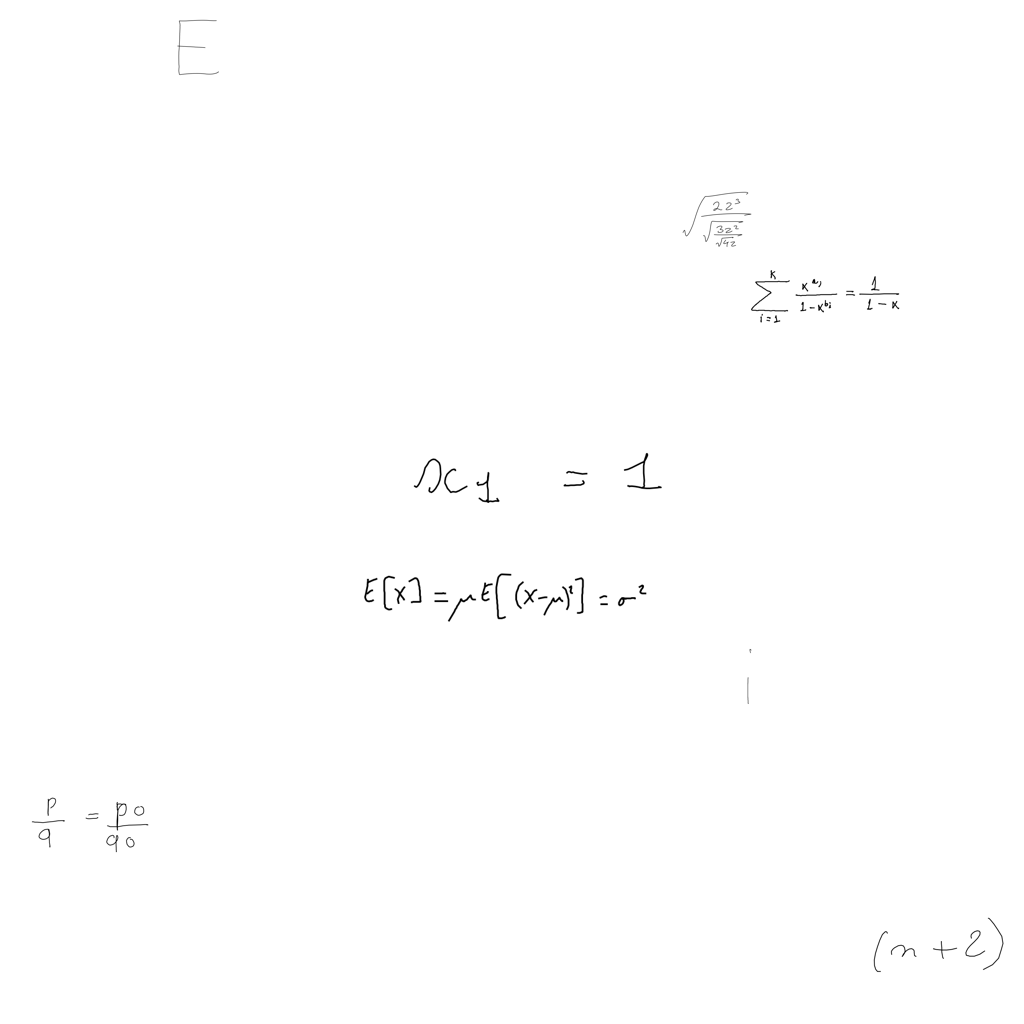 E
\sqrt{\frac{2z^3}{\sqrt{\frac{3z^2}{\sqrt{4z}}}}}
\sum_{i=1}^{k} \frac{x^{a_i}}{1-x^{b_i}} = \frac{1}{1-x}
x_1 = 1
E[X] = \mu E[(X-\mu)^2] = \sigma^2
i
\frac{p}{q} = \frac{p_0}{q_0}
(n+2)